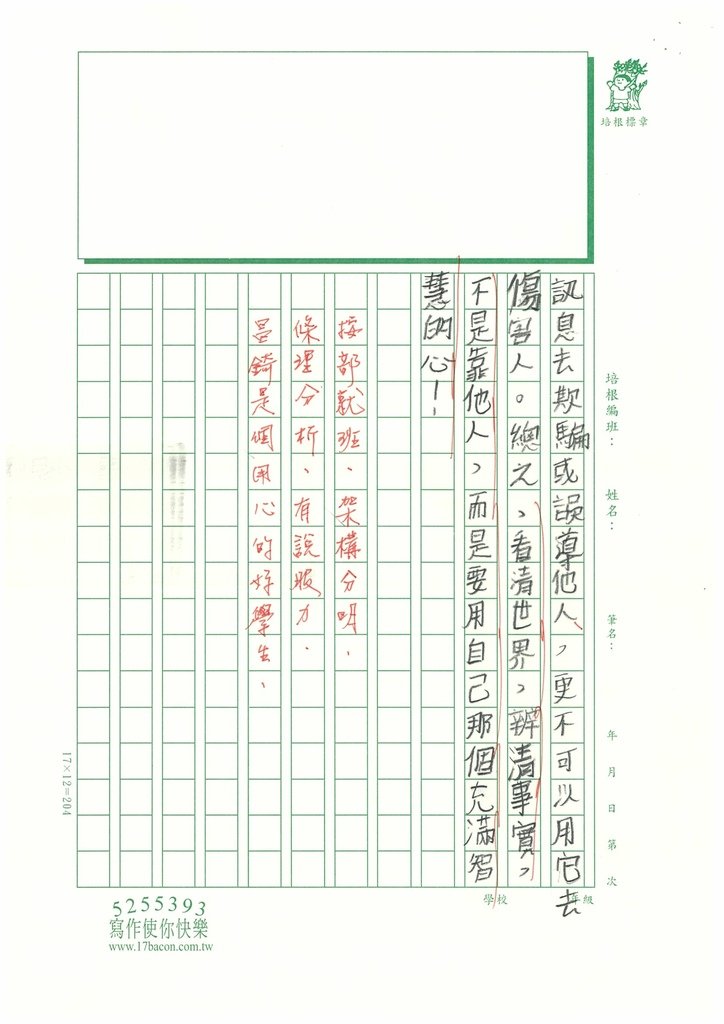 培根標章
培根編班：
姓名：
筆名：
年 月 日 第 次
學校
年級
訊息去欺騙或誤導他人，更不可以用它去
傷害人。總之，看清世界，辨清事實，
不是靠他人，而是要用自己那個充滿智
慧的心！
按部就班、架構分明、
條理分析、有說服力、
昱錡是個用心的好學生、
17×12=204
5255393
寫作使你快樂
www.17bacon.com.tw